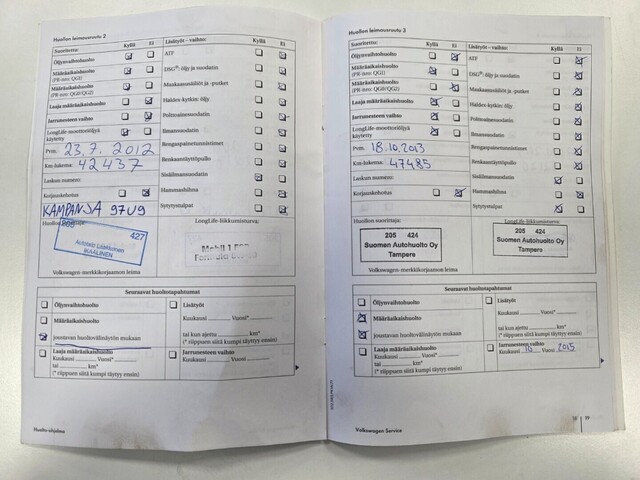 Huollon leimausruutu 2
Suoritettu: Kyllä Ei
Öljynvaihtohuolto
Määräaikaishuolto
(PR-nro: QG1)
Määräaikaishuolto
(PR-nro: QG0/QG2)
Laaja määräaikaishuolto
Jarrunesteen vaihto
LongLife-moottoriöljyä
käytetty
Pvm. 23.7.2012
Km-lukema: 42437
Laskun numero:
Korjauskehotus
KAMPANJA 97U9
Lisätyöt – vaihto: Kyllä Ei
ATF
DSG®: öljy ja suodatin
Maakaasusäiliöt ja -putket
Haldex-kytkin: öljy
Polttoainesuodatin
Ilmansuodatin
Rengaspainetunnistimet
Renkaantäyttöpullo
Sisäilmansuodatin
Hammashihna
Sytytystulpat
Huollon
LongLife-liikkumisturva:
427
IKAALINEN
Mobil 1 ESP
Formula
Volkswagen-merkkikorjaamon leima
Seuraavat huoltotapahtumat
Öljynvaihtohuolto
Määräaikaishuolto
joustavan huoltovälinäytön mukaan
Laaja määräaikaishuolto
Kuukausi Vuosi*
tai km*
(* riippuen siitä kumpi täyttyy ensin)
Lisätyöt
Kuukausi Vuosi*
tai kun ajettu km*
(* riippuen siitä kumpi täyttyy ensin)
Jarrunesteen vaihto
Kuukausi Vuosi
Huolto-ohjelma
Huollon leimausruutu 3
Suoritettu: Kyllä Ei
Öljynvaihtohuolto
Määräaikaishuolto
(PR-nro: QG1)
Määräaikaishuolto
(PR-nro: QG0/QG2)
Laaja määräaikaishuolto
Jarrunesteen vaihto
LongLife-moottoriöljyä
käytetty
Pvm. 18.10.2013
Km-lukema: 47485
Laskun numero:
Korjauskehotus
Lisätyöt – vaihto: Kyllä Ei
ATF
DSG®: öljy ja suodatin
Maakaasusäiliöt ja -putket
Haldex-kytkin: öljy
Polttoainesuodatin
Ilmansuodatin
Rengaspainetunnistimet
Renkaantäyttöpullo
Sisäilmansuodatin
Hammashihna
Sytytystulpat
Huollon suorittaja:
LongLife-liikkumisturva:
205 424
Suomen Autohuolto Oy
Tampere
205 424
Suomen Autohuolto Oy
Tampere
Volkswagen-merkkikorjaamon leima
Seuraavat huoltotapahtumat
Öljynvaihtohuolto
Määräaikaishuolto
joustavan huoltovälinäytön mukaan
Laaja määräaikaishuolto
Kuukausi Vuosi*
tai km*
(* riippuen siitä kumpi täyttyy ensin)
Lisätyöt
Kuukausi Vuosi*
tai kun ajettu km*
(* riippuen siitä kumpi täyttyy ensin)
Jarrunesteen vaihto
Kuukausi 10 Vuosi 2015
Volkswagen Service
18 | 19